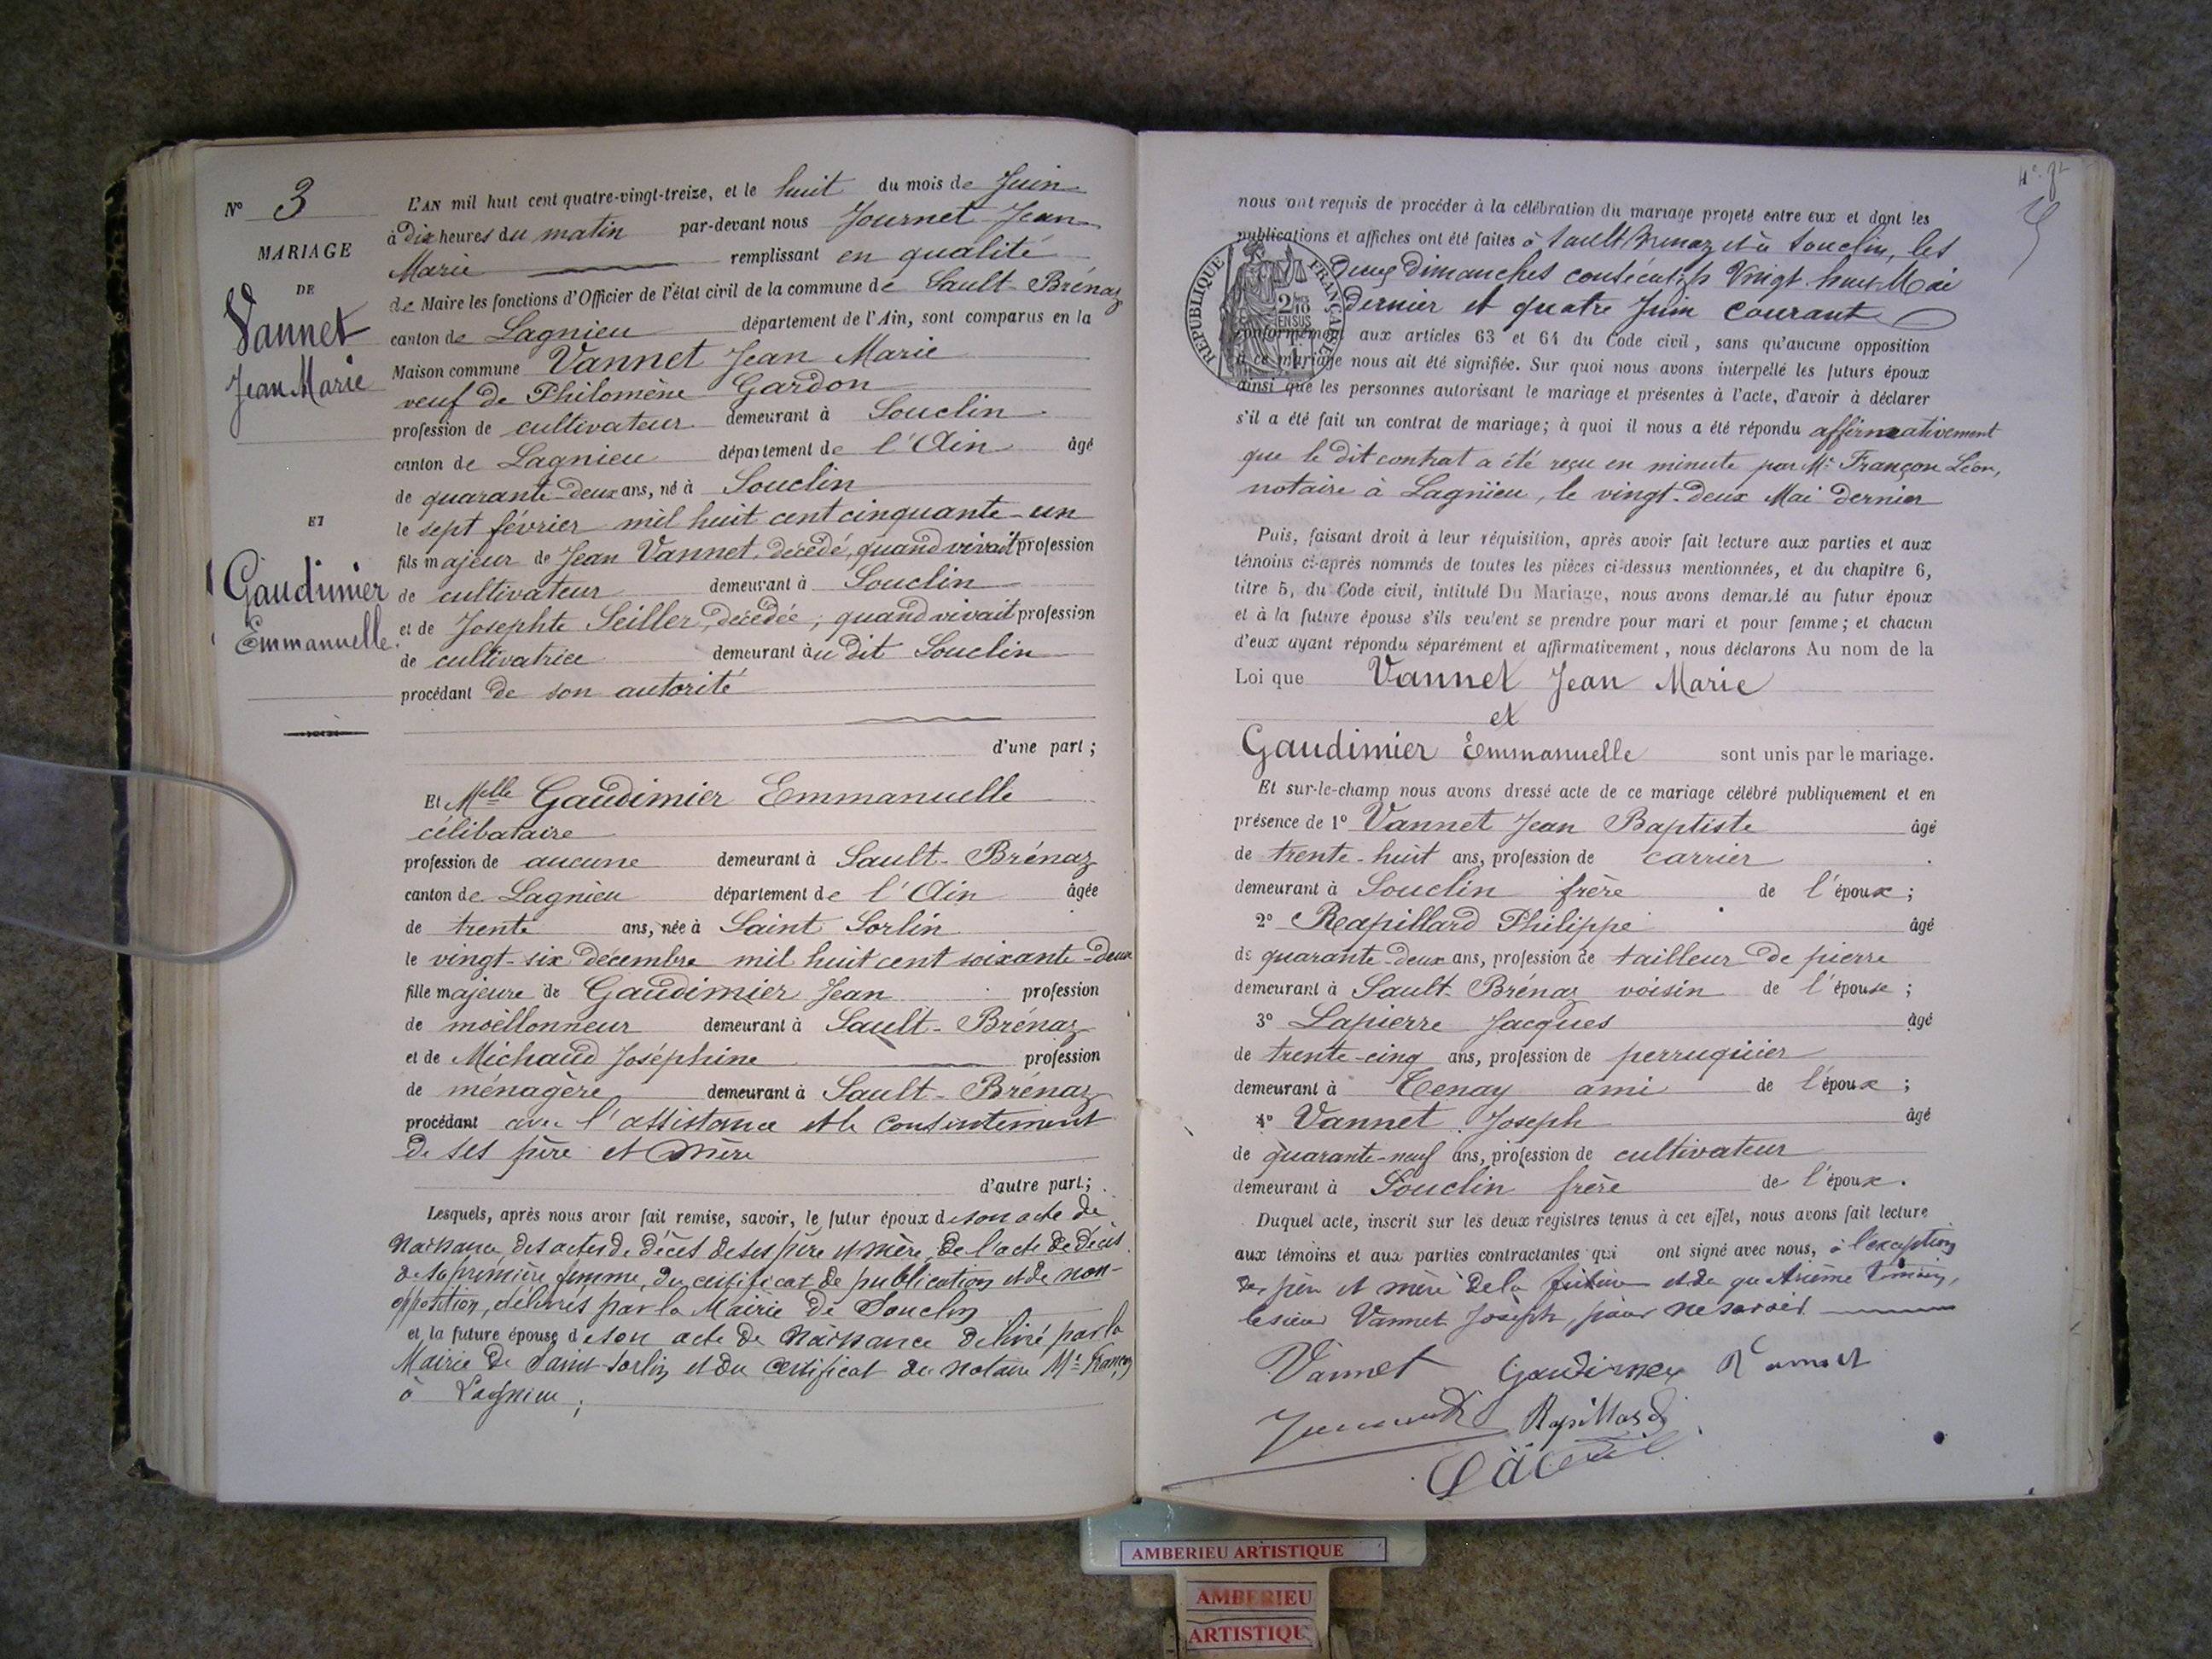 N° 3
MARIAGE
DE
Vannet
Jean Marie
ET
Gaudimier
Emmanuelle.
L'AN mil huit cent quatre-vingt-treize, et le huit du mois de Juin
à dix heures du matin par-devant nous Journet Jean
Marie remplissant en qualité
de Maire les fonctions d'Officier de l'état civil de la commune de Sault-Brénaz
canton de Lagnieu département de l'Ain, sont comparus en la
Maison commune Vannet Jean Marie
veuf de Philomène Gardon
profession de cultivateur demeurant à Souclin
canton de Lagnieu département de l'Ain âgé
de quarante-deux ans, né à Souclin
le sept février mil huit cent cinquante-un
fils majeur de Jean Vannet, décédé, quand vivait profession
de cultivateur demeurant à Souclin
et de Josephte Seiller, décédée, quand vivait profession
de cultivatrice demeurant àu dit Souclin
procédant de son autorité
d'une part;
Et Melle Gaudimier Emmanuelle
célibataire
profession de aucune demeurant à Sault-Brénaz
canton de Lagnieu département de l'Ain âgée
de trente ans, née à Saint Sorlin
le vingt-six décembre mil huit cent soixante-deux
fille majeure de Gaudimier Jean profession
de moëllonneur demeurant à Sault-Brénaz
et de Michaud Joséphine profession
de ménagère demeurant à Sault-Brénaz
procédant avec l'assistance et le consentement
de ses père et mère
d'autre part;
Lesquels, après nous avoir fait remise, savoir, le futur époux de son acte de
naissance, des actes de décès de ses père et mère, de l'acte de décès
de sa première femme, du certificat de publication et de non-
opposition, délivrés par la Mairie de Souclin
et la future épouse de son acte de naissance délivré par la
Mairie de Saint-Sorlin et du certificat du notaire Me Françon
à Lagnieu;
nous ont requis de procéder à la célébration du mariage projeté entre eux et dont les
publications et affiches ont été faites à Sault Brenaz et à Souclin, les
deux Dimanches consécutifs Vingt huit Mai
dernier et quatre Juin courant
conformément aux articles 63 et 64 du Code civil, sans qu'aucune opposition
à ce mariage nous ait été signifiée. Sur quoi nous avons interpellé les futurs époux
ainsi que les personnes autorisant le mariage et présentes à l'acte, d'avoir à déclarer
s'il a été fait un contrat de mariage; à quoi il nous a été répondu affirmativement
que le dit contrat a été reçu en minute par Me Françon Léon,
notaire à Lagnieu, le vingt-deux Mai dernier
REPUBLIQUE FRANÇAISE
2/10
EN SUS
Puis, faisant droit à leur réquisition, après avoir fait lecture aux parties et aux
témoins ci-après nommés de toutes les pièces ci-dessus mentionnées, et du chapitre 6,
titre 5, du Code civil, intitulé Du Mariage, nous avons demandé au futur époux
et à la future épouse s'ils veulent se prendre pour mari et pour femme; et chacun
d'eux ayant répondu séparément et affirmativement, nous déclarons Au nom de la
Loi que Vannet Jean Marie
et
Gaudimier Emmanuelle sont unis par le mariage.
Et sur-le-champ nous avons dressé acte de ce mariage célébré publiquement et en
présence de 1° Vannet Jean Baptiste âgé
de trente-huit ans, profession de carrier
demeurant à Souclin frère de l'époux;
2° Rapillard Philippe âgé
de quarante-deux ans, profession de tailleur de pierre
demeurant à Sault-Brénaz voisin de l'épouse;
3° Lapierre Jacques âgé
de trente-cinq ans, profession de perruquier
demeurant à Tenay ami de l'époux;
4° Vannet Joseph âgé
de quarante-neuf ans, profession de cultivateur
demeurant à Souclin frère de l'époux.
Duquel acte, inscrit sur les deux registres tenus à cet effet, nous avons fait lecture
aux témoins et aux parties contractantes qui ont signé avec nous, à l'exception
des père et mère de la future et du quatrième témoin,
le sieur Vannet Joseph, pour ne savoir.
Vannet Gaudimier Vannet
Rapillard
AMBERIEU ARTISTIQUE
AMBERIEU
ARTISTIQU